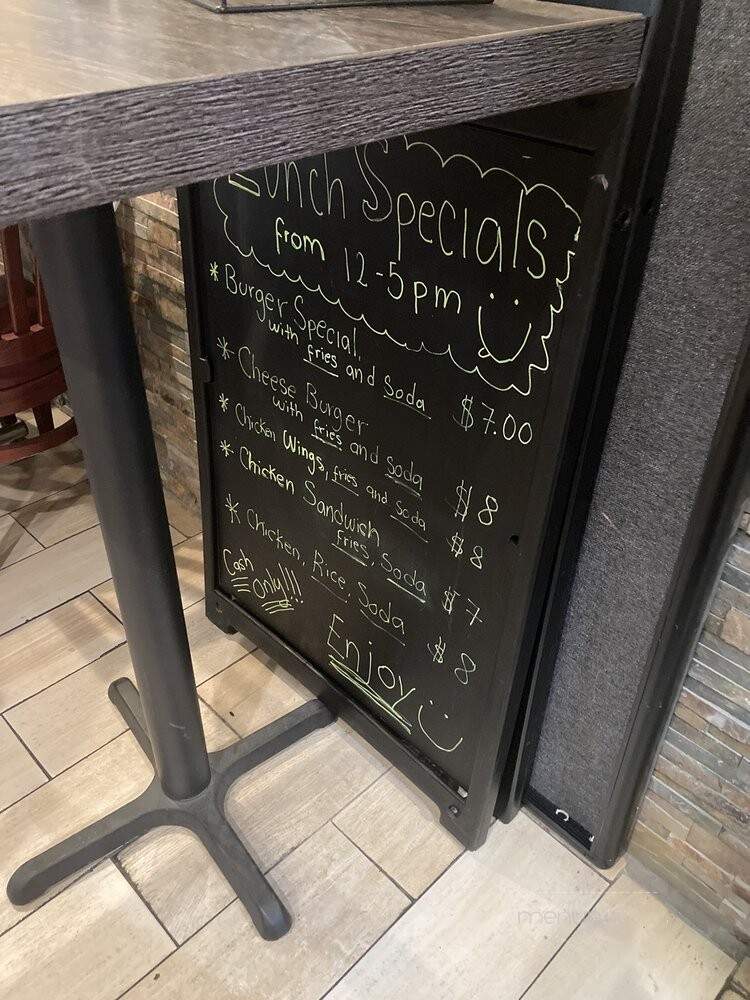 Lunch Specials
from 12-5pm
* Burger Special,
with fries and soda $7.00
* Cheese Burger
with fries and soda $8
* Chicken Wings, fries and soda $8
* Chicken Sandwich
fries, Soda $7
* Chicken, Rice, Soda $8
Cash
only!!!
Enjoy